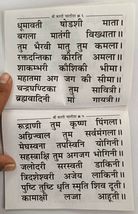 श्री काली चालीसा
धूमावती षोडशी माता ।
बगला मातंगी विख्याता ॥
तुम भैरवी मातु तुम कमला ।
रक्तदन्तिका कीरति अमला ॥
शाकम्भरी कौशिकी भीमा ।
महातमा अग जग की सीमा ॥
चन्द्रघण्टिका तुम सावित्री ।
ब्रह्मवादिनी मां गायत्री ॥
श्री काली चालीसा
रूद्राणी तुम कृष्ण पिंगला ।
अग्निज्वाल तुम सर्वमंगला ॥
मेघस्वना तपस्विनि योगिनी ।
सहस्त्राक्षि तुम अगजग भोगिनी ॥
जलोदरी सरस्वती डाकिनी ।
त्रिदशेश्वरी अजेय लाकिनी ॥
पुष्टि तुष्टि धृति स्मृति शिव दूती ।
कामाक्षी लज्जा आहूती ॥